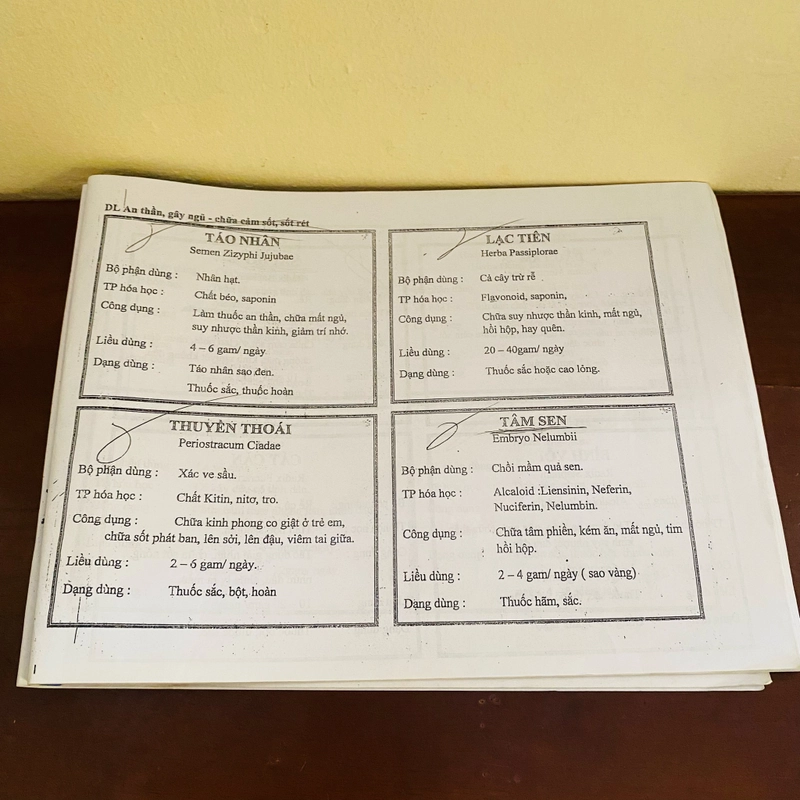 DL An thần, gây ngủ - chữa cảm sốt, sốt rét
TÁO NHÂN
Semen Zizyphi Jujubae
Bộ phận dùng : Nhân hạt.
TP hóa học : Chất béo, saponin
Công dụng : Làm thuốc an thần, chữa mất ngủ,
suy nhược thần kinh, giảm trí nhớ.
Liều dùng : 4 – 6 gam/ ngày
Dạng dùng : Táo nhân sao đen.
Thuốc sắc, thuốc hoàn
LẠC TIÊN
Herba Passiplorae
Bộ phận dùng : Cả cây trừ rễ
TP hóa học : Flavonoid, saponin,
Công dụng : Chữa suy nhược thần kinh, mất ngủ,
hồi hộp, hay quên.
Liều dùng : 20 – 40gam/ ngày
Dạng dùng : Thuốc sắc hoặc cao lỏng.
THUYỀN THOÁI
Periostracum Ciadae
Bộ phận dùng : Xác ve sầu.
TP hóa học : Chất Kitin, nitơ, tro.
Công dụng : Chữa kinh phong co giật ở trẻ em,
chữa sốt phát ban, lên sởi, lên đậu, viêm tai giữa.
Liều dùng : 2 – 6 gam/ ngày.
Dạng dùng : Thuốc sắc, bột, hoàn
TÂM SEN
Embryo Nelumbii
Bộ phận dùng : Chồi mầm quả sen.
TP hóa học : Alcaloid :Liensinin, Neferin,
Nuciferin, Nelumbin.
Công dụng : Chữa tâm phiền, kém ăn, mất ngủ, tim
hồi hộp.
Liều dùng : 2 – 4 gam/ ngày ( sao vàng)
Dạng dùng : Thuốc hãm, sắc.